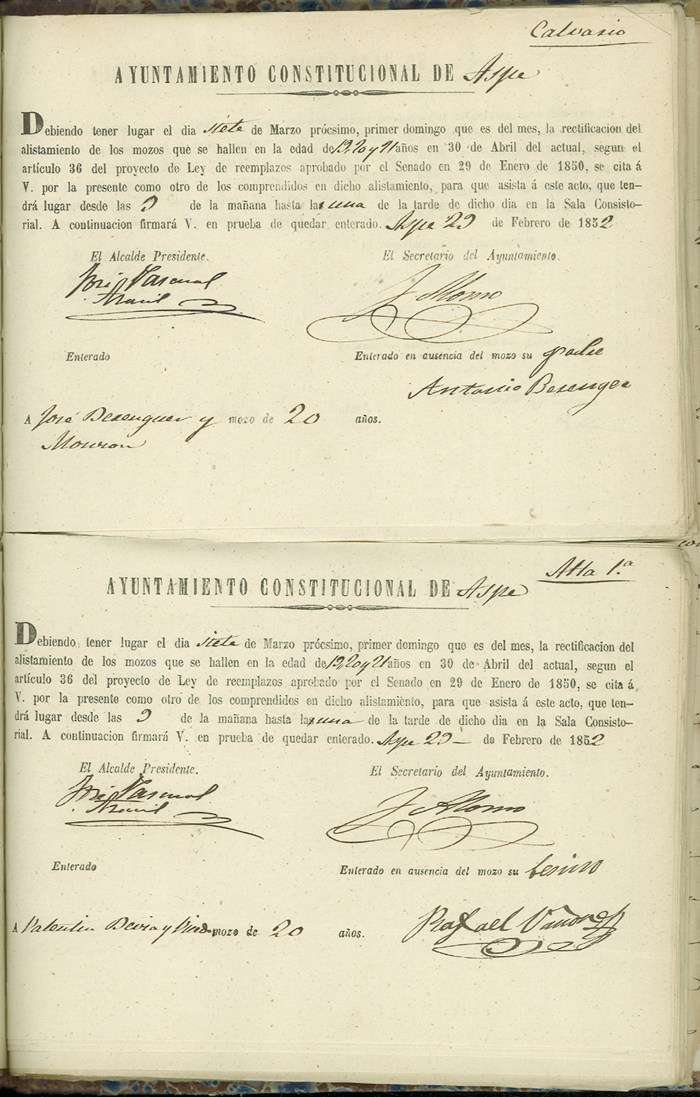 Calvario
AYUNTAMIENTO CONSTITUCIONAL DE Aspe
Debiendo tener lugar el dia siete de Marzo prócsimo, primer domingo que es del mes, la rectificacion del
alistamiento de los mozos que se hallen en la edad de 19, 20 y 21 años en 30 de Abril del actual, segun el
artículo 36 del proyecto de Ley de reemplazos aprobado por el Senado en 29 de Enero de 1850, se cita á
V. por la presente como otro de los comprendidos en dicho alistamiento, para que asista á este acto, que ten-
drá lugar desde las 9 de la mañana hasta la una de la tarde de dicho dia en la Sala Consisto-
rial. A continuacion firmará V. en prueba de quedar enterado. Aspe 29 de Febrero de 1852
El Alcalde Presidente. El Secretario del Ayuntamiento.
José Pascual J. Alonso
Enterado Enterado en ausencia del mozo su padre
Antonio Berenger
A José Berenguer y mozo de 20 años.
Alta 1.a
AYUNTAMIENTO CONSTITUCIONAL DE Aspe
Debiendo tener lugar el dia siete de Marzo prócsimo, primer domingo que es del mes, la rectificacion del
alistamiento de los mozos que se hallen en la edad de 19, 20 y 21 años en 30 de Abril del actual, segun el
artículo 36 del proyecto de Ley de reemplazos aprobado por el Senado en 29 de Enero de 1850, se cita á
V. por la presente como otro de los comprendidos en dicho alistamiento, para que asista á este acto, que ten-
drá lugar desde las 9 de la mañana hasta la una de la tarde de dicho dia en la Sala Consisto-
rial. A continuacion firmará V. en prueba de quedar enterado. Aspe 29 de Febrero de 1852
El Alcalde Presidente. El Secretario del Ayuntamiento.
José Pascual J. Alonso
Enterado Enterado en ausencia del mozo su
A Valentin y mozo de 20 años. Rafael